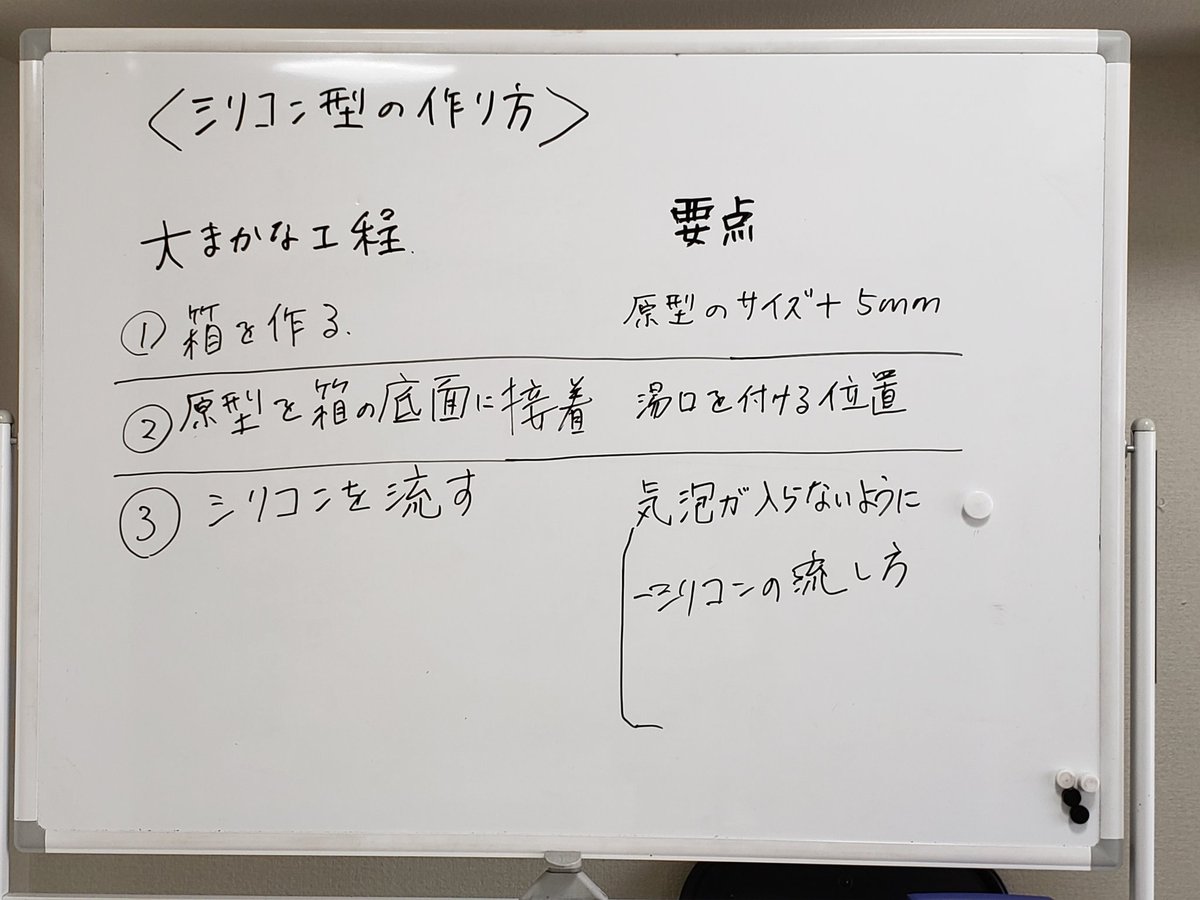 〈シリコン型の作り方〉
大まかな工程
要点
① 箱を作る.
原型のサイズ+5mm
② 原型を箱の底面に接着
湯口を付ける位置
③ シリコンを流す
気泡が入らないように
-シリコンの流し方